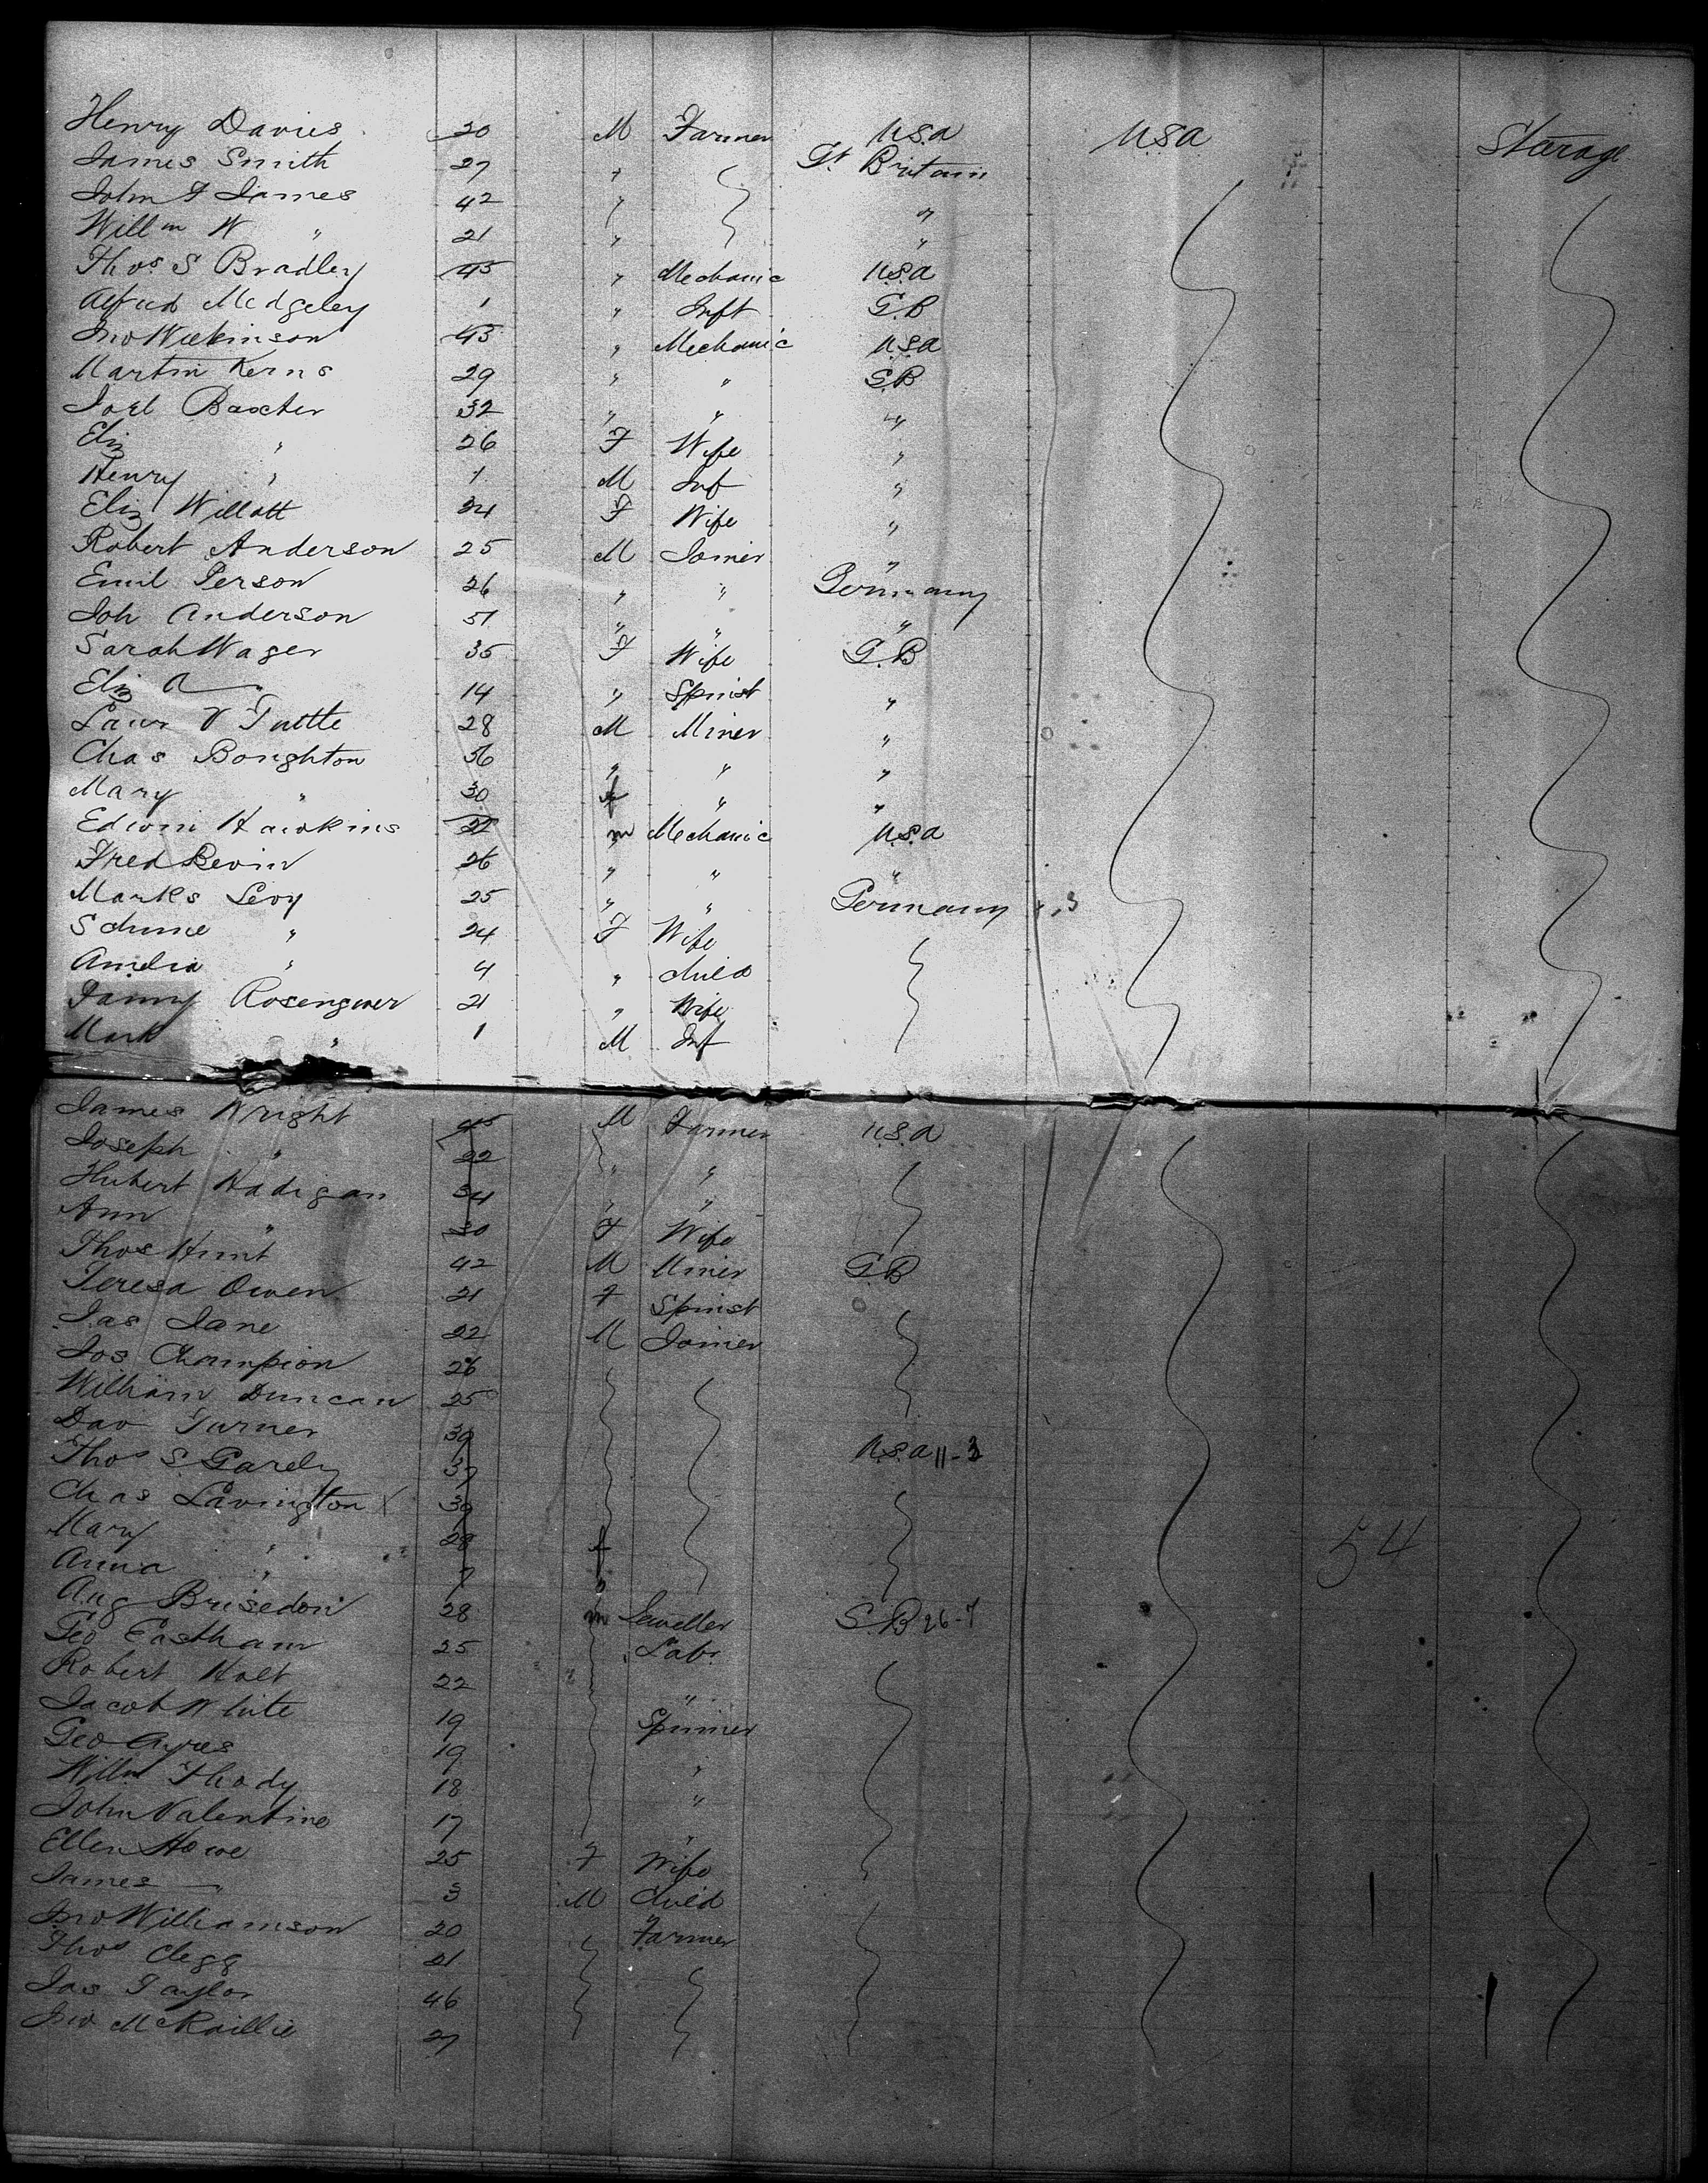 Henry Davies 20 M Farmer USA USA Steerage
James Smith 27 " Gt. Britain
John F James 42 " "
Willm W " 21 " "
Thos S Bradley 45 " Mechanic USA
Alfred Medgeley 1 " Inft G.B
Jno Wilkinson 43 " Mechanic USA
Martin Kerns 29 " " G.B
Joel Baxter 32 " " "
Eliz " 26 F Wife "
Henry " 1 M Inf "
Eliz Willott 24 F Wife "
Robert Anderson 25 M Joiner "
Emil Person 26 " " Germany
Joh Anderson 51 " " "
Sarah Wager 35 F Wife G.B
Eliz A " 14 " Spinst "
Laur V Tuttle 28 M Miner "
Chas Boughton 36 " " "
Mary " 30 f " "
Edwin Hawkins 22 m Mechanic USA
Fred Bevin 26 " " "
Marks Levy 25 " " Germany
Schme " 24 F Wife
Amelia " 4 " Child
Fanny 21 " Wife
Mark " 1 M Inf
James Wright 45 M Farmer USA
Joseph " 22 " "
Hubert Hadigan 34 " "
Ann " 30 F Wife
Thos Hunt 42 M Miner G.B
Teresa Owen 21 F Spinst
Jas Jane 22 M Joiner
Jos Champion 26
William Duncan 25
Dav Turner 39 USA 11-3
Thos S. Garely 37
Chas Lavington X 39
Mary " 28 f
Anna " 7 "
Aug Brisedon 28 m Jeweller G.B 26-7
Geo Eastham 25 Labr
Robert Holt 22 "
Jacob White 19 Spinner
Geo Ayres 19 "
Willm Thody 18 "
John Valentine 17 "
Ellen Howe 25 F Wife
James " 3 M Child
Jno Williamson 20 Farmer
Thos Clegg 21
Jas Taylor 46
Jno McRaillie 27
54